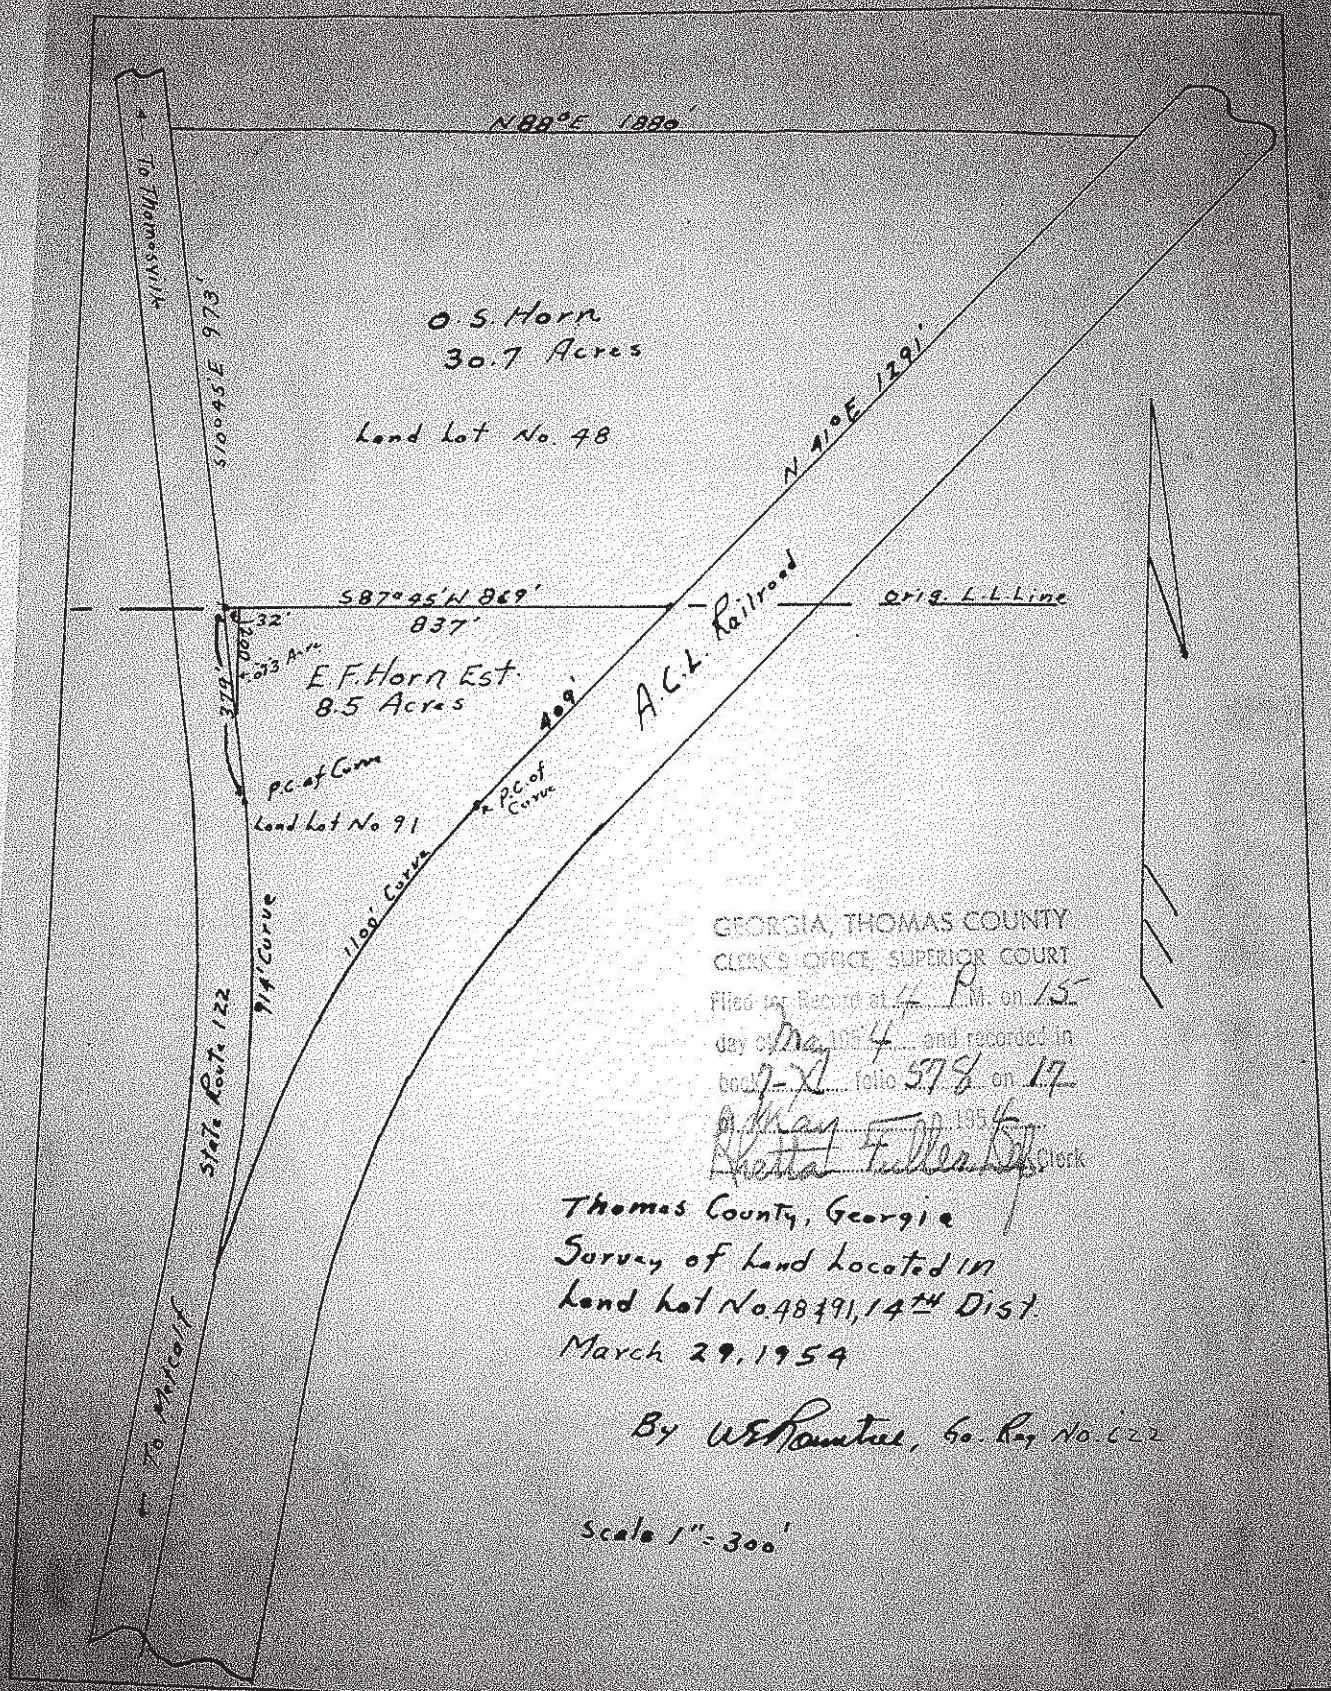 N 88° E 1880'
← To Thomasville
S10°45'E 973'
O. S. Horn
30.7 Acres
Land Lot No. 48
N 41° E 1291'
S87°45'W 869'
Orig. L.L. Line
32'
837'
200'
.073 Acre
E. F. Horn Est.
8.5 Acres
379'
409'
A.C.L. Railroad
P.C. of Curve
P.C. of
Curve
Land Lot No 91
1100' Curve
914' Curve
State Route 122
← To Metcalf
GEORGIA, THOMAS COUNTY
CLERK'S OFFICE, SUPERIOR COURT
Filed for Record at 4 P.M. on 15
day of May 1954 and recorded in
book folio 578 on 17
of May 1954
Fuller Clerk
Thomas County, Georgia
Survey of Land Located in
Land Lot No. 48 & 91, 14th Dist
March 29, 1954
By W E Rountree, Ga. Reg No. 622
Scale 1" = 300'